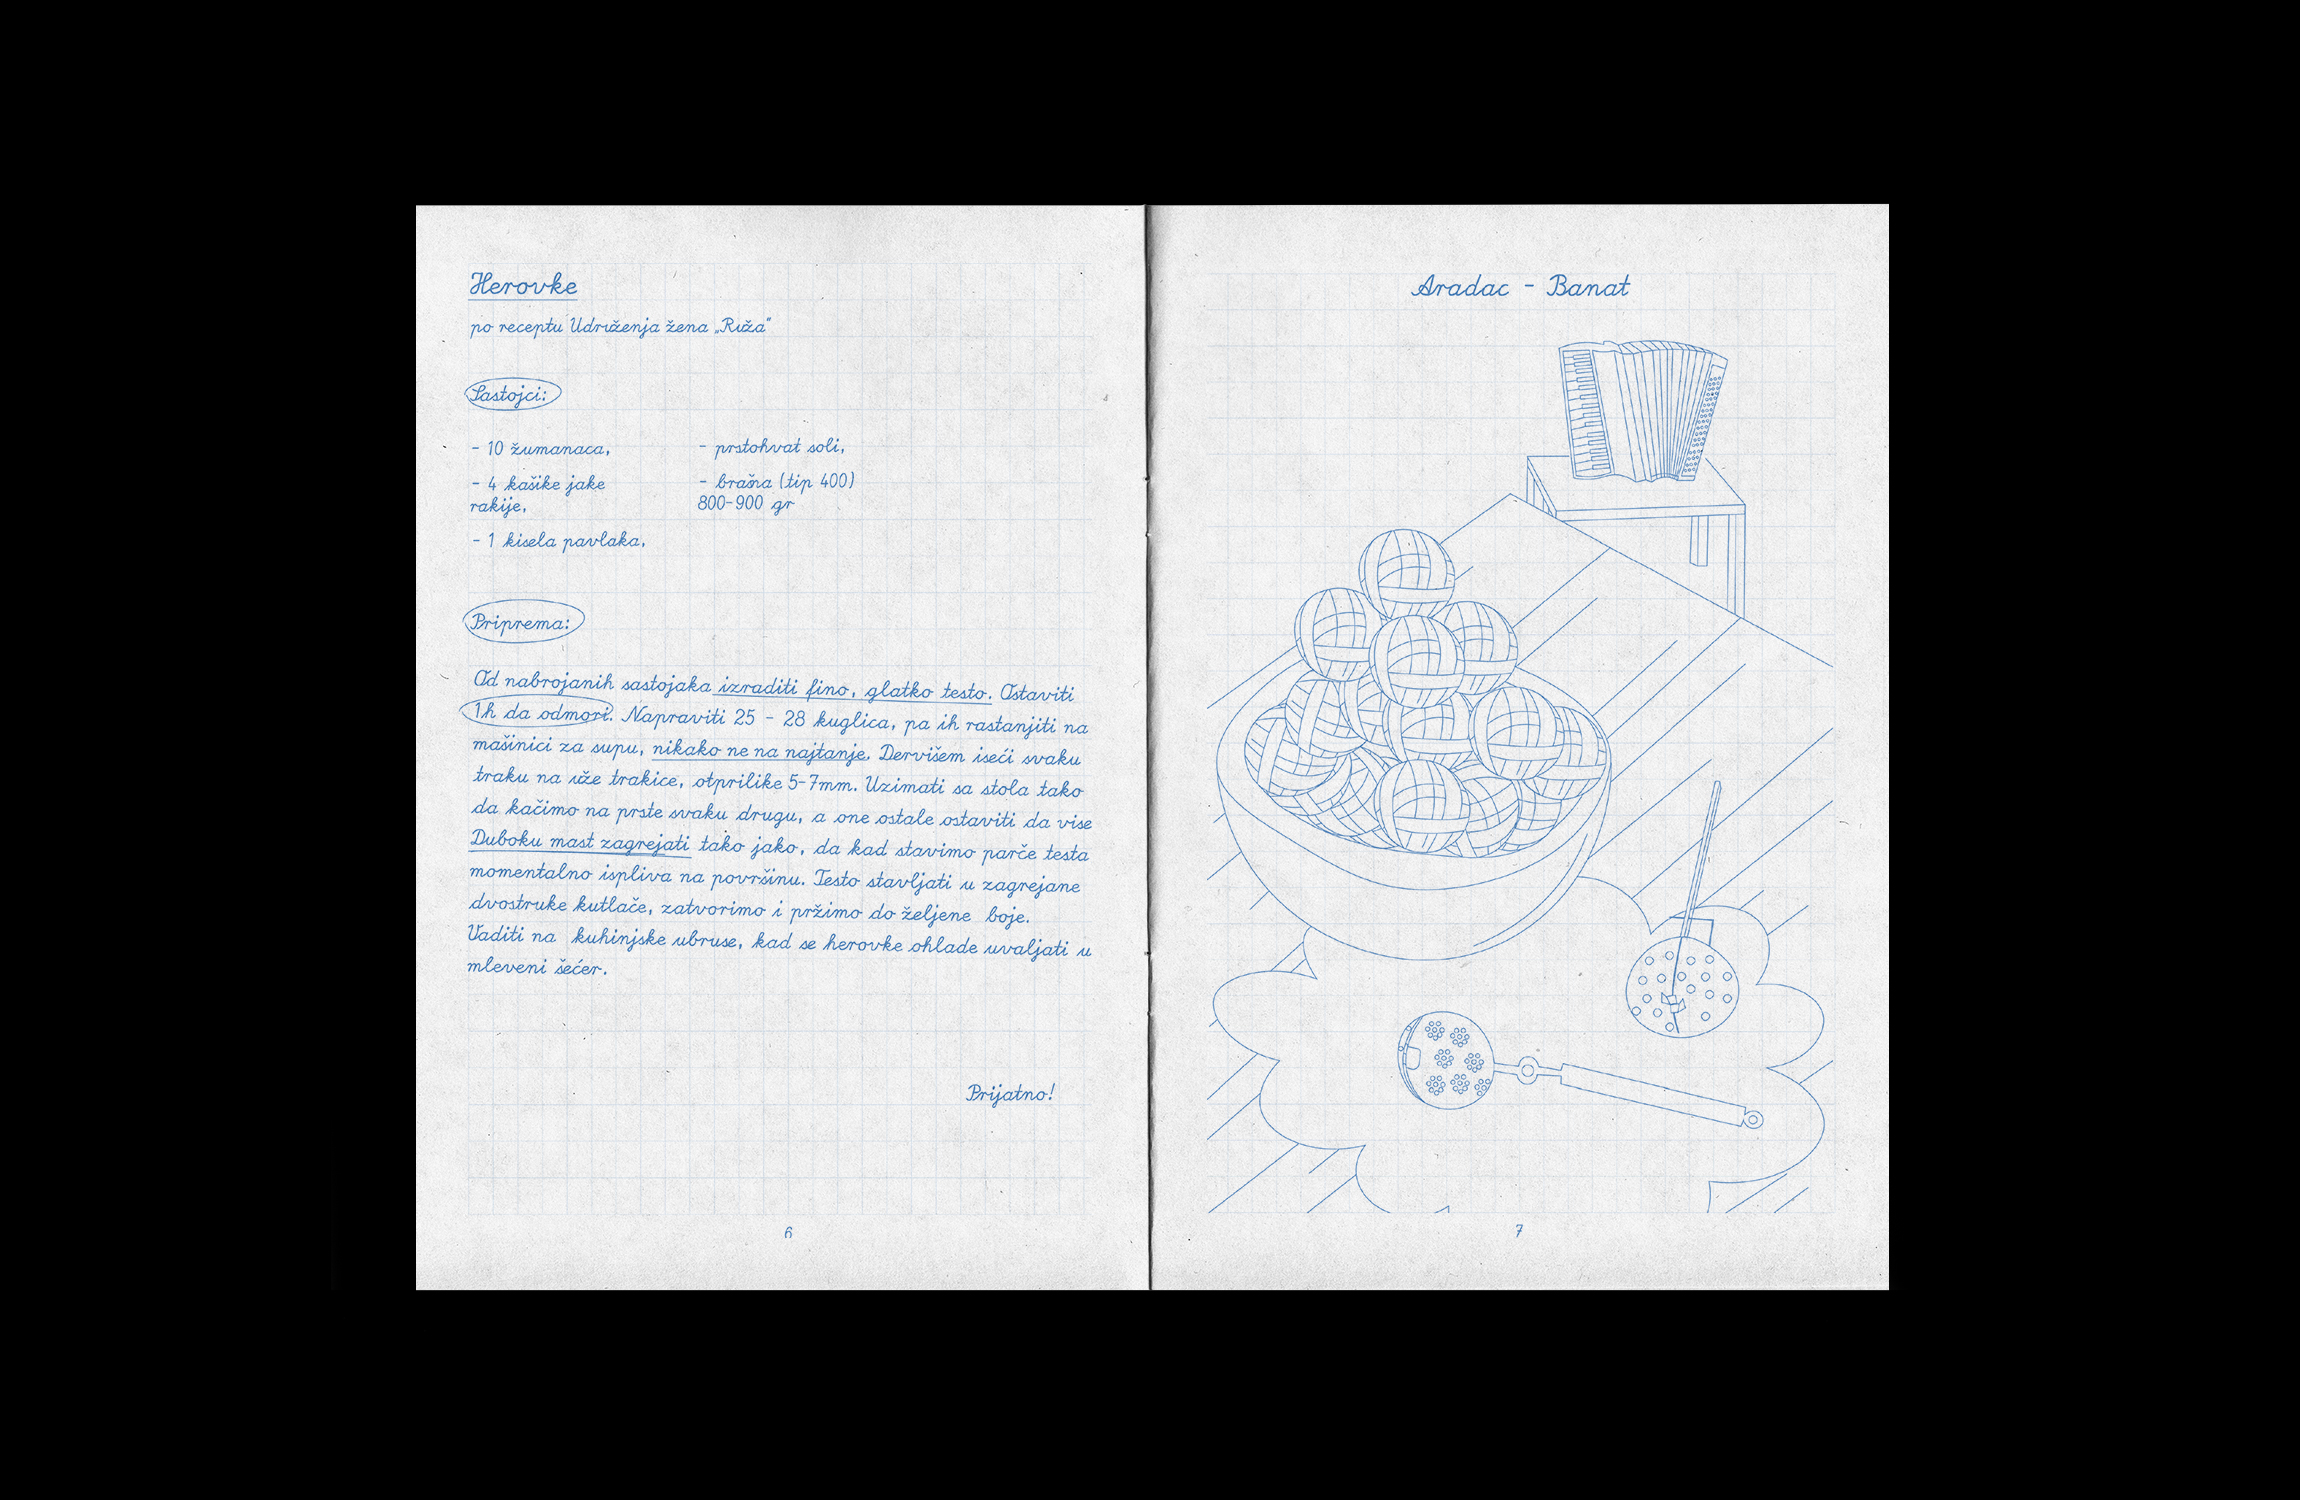 Herovke
po receptu Udruženja žena „Ruža“
Sastojci:
- 10 žumanaca,
- 4 kašike jake
rakije,
- 1 kisela pavlaka,
- prstohvat soli,
- brašna (tip 400)
800-900 gr
Priprema:
Od nabrojanih sastojaka izraditi fino, glatko testo. Ostaviti
1h da odmori. Napraviti 25 - 28 kuglica, pa ih rastanjiti na
mašinici za supu, nikako ne na najtanje. Dervišem iseći svaku
traku na uže trakice, otprilike 5-7mm. Uzimati sa stola tako
da kačimo na prste svaku drugu, a one ostale ostaviti da vise
Duboku mast zagrejati tako jako, da kad stavimo parče testa
momentalno ispliva na površinu. Testo stavljati u zagrejane
dvostruke kutlače, zatvorimo i pržimo do željene boje.
Vaditi na kuhinjske ubruse, kad se herovke ohlade uvaljati u
mleveni šećer.
Prijatno!
6
Aradac - Banat
7